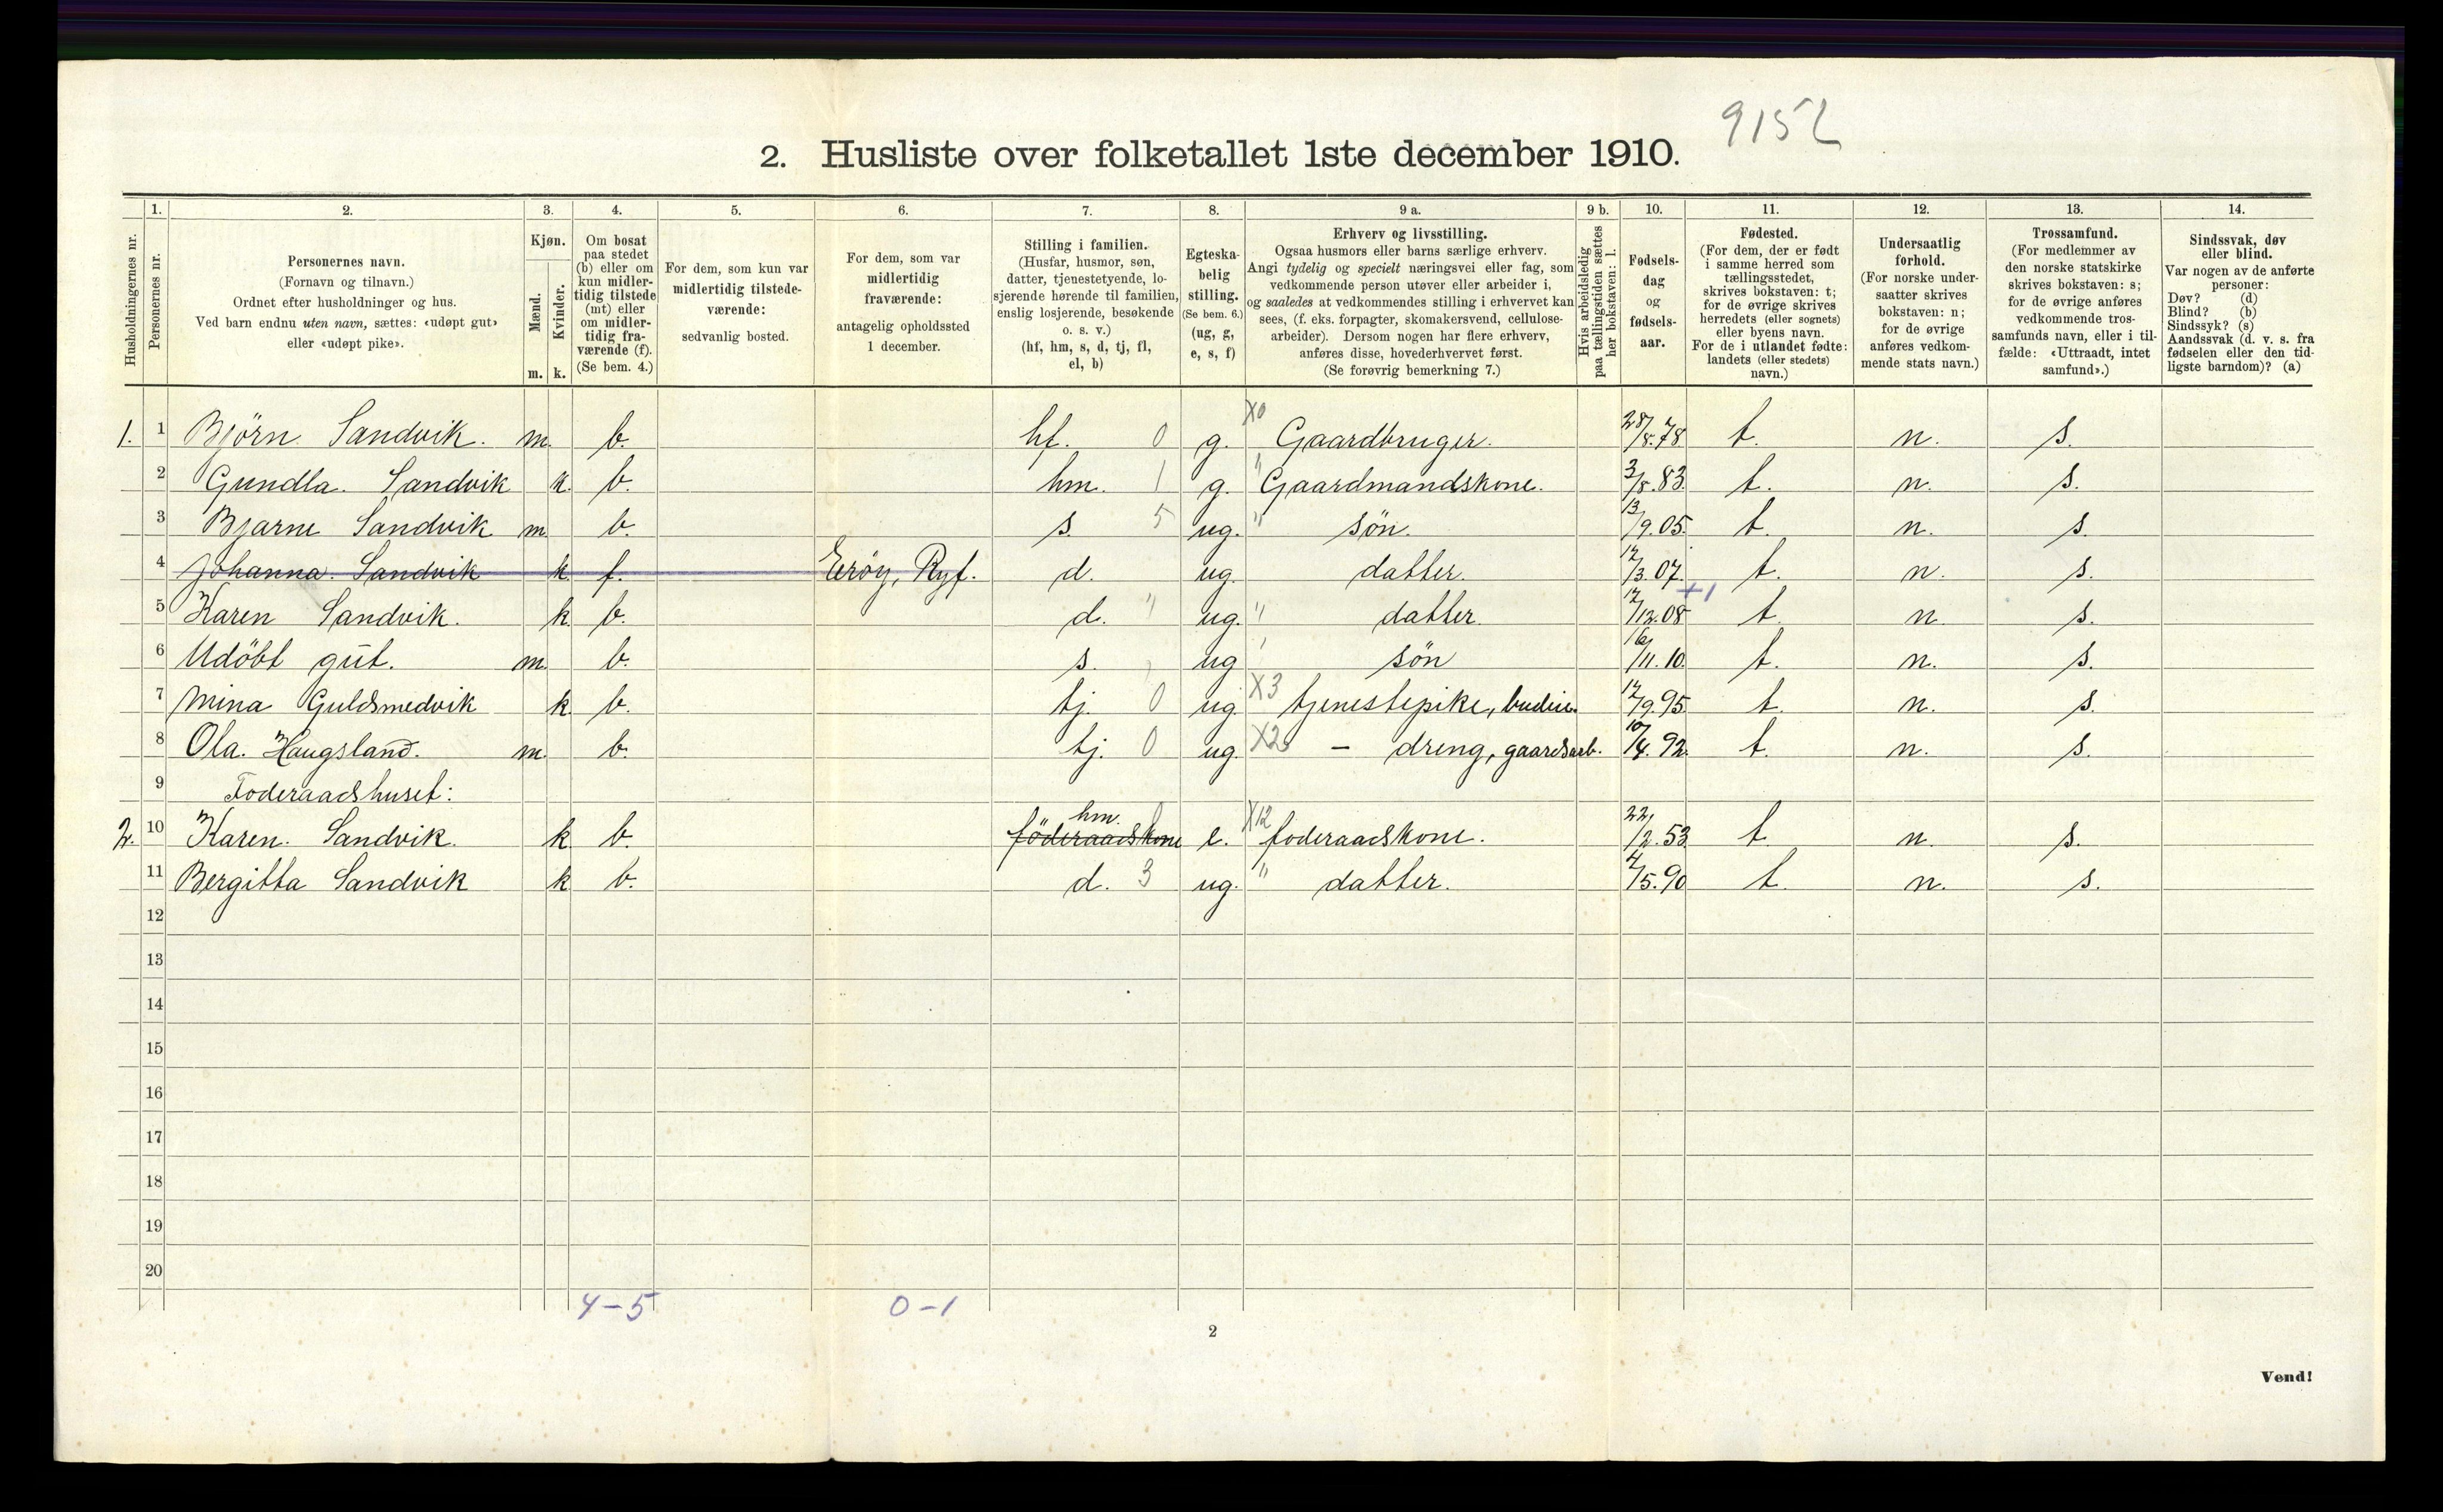 9152
2. Husliste over folketallet 1ste december 1910.
Husholdningernes nr.
1. Personernes nr.
2. Personernes navn.
(Fornavn og tilnavn.)
Ordnet efter husholdninger og hus.
Ved barn endnu uten navn, sættes: «udøpt gut»
eller «udøpt pike».
3. Kjøn.
Mænd. Kvinder.
m. k.
4. Om bosat
paa stedet
(b) eller om
kun midler-
tidig tilstede
(mt) eller
om midler-
tidig fra-
værende (f).
(Se bem. 4.)
5. For dem, som kun var
midlertidig tilstede-
værende:
sedvanlig bosted.
6. For dem, som var
midlertidig
fraværende:
antagelig opholdssted
1 december.
7. Stilling i familien.
(Husfar, husmor, søn,
datter, tjenestetyende, lo-
sjerende hørende til familien,
enslig losjerende, besøkende
o. s. v.)
(hf, hm, s, d, tj, fl,
el, b)
8. Egteska-
belig
stilling.
(Se bem. 6.)
(ug, g,
e, s, f)
9 a. Erhverv og livsstilling.
Ogsaa husmors eller barns særlige erhverv.
Angi tydelig og specielt næringsvei eller fag, som
vedkommende person utøver eller arbeider i,
og saaledes at vedkommendes stilling i erhvervet kan
sees, (f. eks. forpagter, skomakersvend, cellulose-
arbeider). Dersom nogen har flere erhverv,
anføres disse, hovederhvervet først.
(Se forøvrig bemerkning 7.)
9 b. Hvis arbeidsledig
paa tællingstiden sættes
her bokstaven: l.
10. Fødsels-
dag
og
fødsels-
aar.
11. Fødested.
(For dem, der er født
i samme herred som
tællingsstedet,
skrives bokstaven: t;
for de øvrige skrives
herredets (eller sognets)
eller byens navn.
For de i utlandet fødte:
landets (eller stedets)
navn.)
12. Undersaatlig
forhold.
(For norske under-
saatter skrives
bokstaven: n;
for de øvrige
anføres vedkom-
mende stats navn.)
13. Trossamfund.
(For medlemmer av
den norske statskirke
skrives bokstaven: s;
for de øvrige anføres
vedkommende tros-
samfunds navn, eller i til-
fælde: «Uttraadt, intet
samfund».)
14. Sindssvak, døv
eller blind.
Var nogen av de anførte
personer:
Døv? (d)
Blind? (b)
Sindssyk? (s)
Aandssvak (d. v. s. fra
fødselen eller den tid-
ligste barndom)? (a)
1. 1 Bjørn Sandvik. m. b. hf. 0 g. X0 Gaardbruger. 28/8.78. t. n. s.
2 Gundla. Sandvik k. b. hm. 1 g. " Gaardmandskone. 3/8.83. t. n. s.
3 Bjarne Sandvik m. b. s. 5 ug. " søn. 13/9.05. t. n. s.
4 Johanna. Sandvik k. f. Erøy, Ryf. d. ug. datter. 12/3.07. t. n. s.
+1
5 Karen Sandvik. k. b. d. " ug. " datter. 12/12.08 t. n. s.
6 Udöbt gut. m. b. s. ug søn 16/11.10. t. n. s.
7 Mina Guldsmedvik k. b. tj. 0 ug. X3 tjenestepike, budeie. 12/9.95. t. n. s.
8 Ola. Haugsland. m. b. tj. 0 ug. X2 – dreng, gaardsarb. 10/4.92. t. n. s.
9 Foderaadshuset:
hm.
2. 10 Karen. Sandvik. k. b. föderaadskone e. X12 foderaadskone. 22/12.53 t. n. s.
11 Bergitta Sandvik k b. d. 3 ug. " datter. 4/5.90 t. n. s.
12
13
14
15
16
17
18
19
20
4-5 0-1
2
Vend!